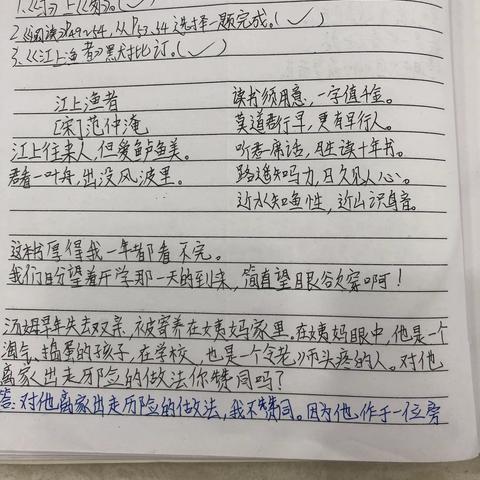 2.《阅读》P49~54,从P53、54选择一题完成。(✓)
3.《江上渔者》默对批订。(✓)
江上渔者
[宋]范仲淹
江上往来人,但爱鲈鱼美。
君看一叶舟,出没风波里。
读书须用意,一字值千金。
莫道君行早,更有早行人。
听君一席话,胜读十年书。
路遥知马力,日久见人心。
近水知鱼性,近山识鸟音。
这本书厚得我一年都看不完。
我们盼望着开学那一天的到来,简直望眼欲穿啊!
汤姆早年失去双亲,被寄养在姨妈家里。在姨妈眼中,他是一个
淘气、捣蛋的孩子,在学校,也是一个令老师头疼的人。对他
离家出走历险的做法你赞同吗?
答:对他离家出走历险的做法,我不赞同。因为他作于一位旁